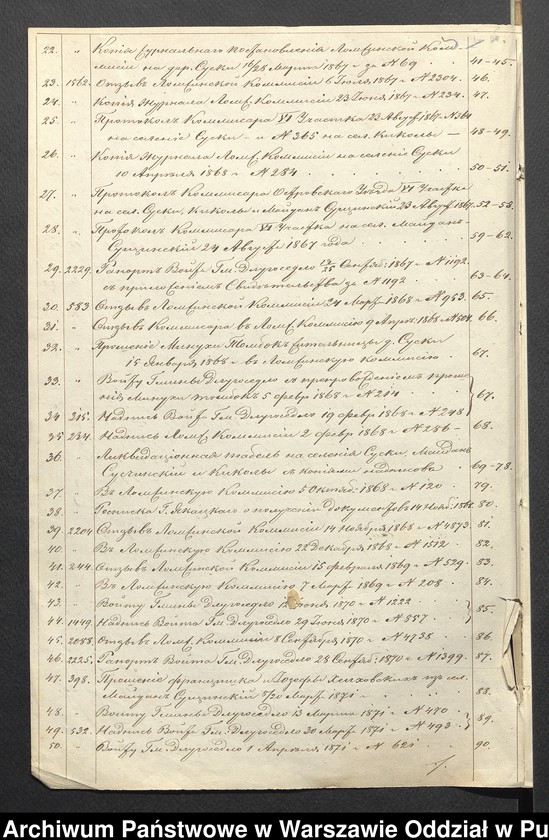 22. " Копія Журнальнаго постановленія Ломжинской Ком-
мисіи на дер. Суски 16/28 Марта 1867 г за №69 41-45.
23. 1562. Отзывъ Ломжинской Коммисіи 6 Іюля 1867 г №2304. 46.
24. " Копія Журнала Ломж. Коммисіи 23 Іюня 1867 г №234. 47.
25. " Протоколъ Коммисара VI Участка 23 Август 1867 №364
на селеніе Суски - и №365 на сел. Киколы — 48-49.
26. " Копія Журнала Ломж. Коммисіи на селеніе Суски
10 Апрѣля 1868 г №284 50-51.
27. " Протоколъ Коммисара Островскаго Уѣзда VI Участка
на сел. Суски, Киколы и Майданъ Сусцинскій 23 Август 1867. 52-58.
28. " Протоколъ Коммисара VI Участка на сел. Майданъ-
Сусцинскій 24 Август 1867 года 59-62.
29. 2229. Рапортъ Войта Гм. Длугоседло 13/25 Сентяб: 1867 г №1192
съ приложеніемъ Свидѣтельства за №1192 63-64.
30. 583 Отзывъ Ломжинской Коммисіи 24 Март 1868 г №953. 65.
31. " Отзывъ Коммисара въ Ломж. Коммисію 9 Апрѣл. 1868 №504. 66.
32. " Прошеніе д. Суски
15 Января 1868 г въ Ломжинскую Коммисію 67.
33. " Войту Гмины Длугоседло съ препровожденіемъ проше-
нія 5 февр 1868 г №214
34. 315. Надпись Войта Гм. Длугоседло 19 февр 1868 г №248 67.
35 234. Надпись Ломж. Коммисіи 2 февр 1868 г №286 - 68.
36. " Ликвидаціонная табель на селенія Суски, Майданъ
Сусцинскій и Киколы съ копіями 69-78.
37. " Въ Ломжинскую Коммисію 5 Октяб. 1868 г №120 79.
38. " Росписка о полученіи документовъ 14 Нояб. 1868. 80.
39. 2204 Отзывъ Ломжинской Коммисіи 14 Ноября 1868 г №4873. 81.
40. " Въ Ломжинскую Коммисію 22 Декабря 1868 г №1512 82.
41. 244. Отзывъ Ломжинской Коммисіи 15 февраля 1869 г №529. 83.
42. " Въ Ломжинскую Коммисію 7 Март 1869 г №208 84.
43. " Войту Гмины Длугоседло 12 Іюня 1870 г №1222
44. 1449. Надпись Войта Гм. Длугоседло 29 Іюня 1870 г №857 85.
45. 2088. Отзывъ Ломж. Коммисіи 8 Сентября 1870 г №4738 86.
46. 2225. Рапортъ Войта Гм. Длугоседло 28 Сентяб: 1870 г №1399. 87.
47. 398. Прошеніе Францишка и Іозефа изъ сел.
Майданъ Сусцинскій 8/20 Март 1871 88.
48. " Войту Гмины Длугоседло 13 Марта 1871 г №470
49. 532. Надпись Войта Гм: Длугоседло 30 Март 1871 г №493 89.
50. " Войту Гм. Длугоседло 1 Апрѣля 1871 г № 621 90.
Archiwum Państwowe w Warszawie Oddział w Pu